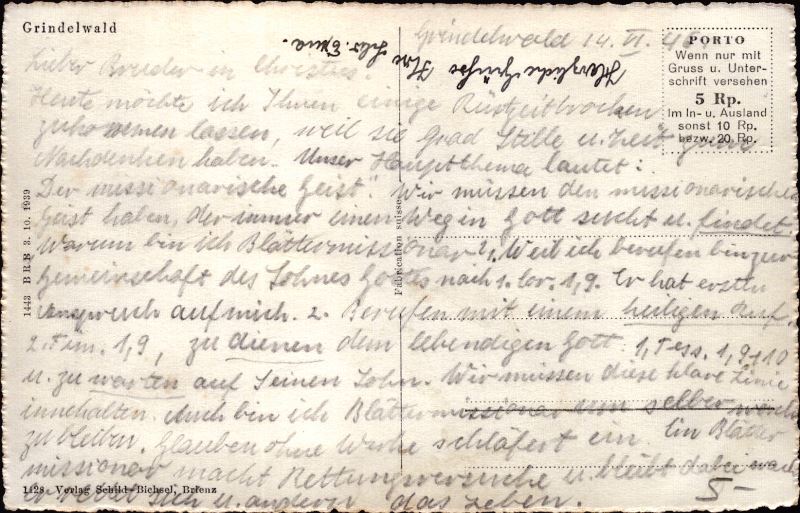 Grindelwald
Grindelwald 14. VI. 46.
Herzliche Grüsse Ihre
Schr. Erna.
PORTO
Wenn nur mit
Gruss u. Unter-
schrift versehen
5 Rp.
Im In- u. Ausland
sonst 10 Rp.
bezw. 20 Rp.
Lieber Bruder in Christus
Heute möchte ich Ihnen einige Rüstzeitbrocken
zukommen lassen, weil sie Grad Stille u. Zeit zum
Nachdenken haben. Unser Hauptthema lautet:
Der missionarische Geist" Wir müssen den missionarischen
Geist haben, der immer einen Weg in Gott sucht u. findet.
Warum bin ich Blättermissionar? 1. Weil ich berufen bin zur
Gemeinschaft des Sohnes Gottes nach 1. Cor. 1,9. Er hat ersten
Anspruch auf mich. 2. Berufen mit einem heiligen Ruf.
2. Tim. 1,9, zu dienen dem lebendigen Gott. 1. Tess. 1,9+10
u. zu warten auf Seinen Sohn. Wir müssen diese klare Linie
innehalten. Auch bin ich Blättermissionar um selber wach
zu bleiben. Glauben ohne Werke schläfert ein. Ein Blätter
missionar macht Rettungsversuche u. bleibt dabei wach
er rettet sich u. andern das Leben.
5-
1443 BRB 3. 10. 1939
Fabrication suisse
1128 Verlag Schild-Bichsel, Brienz